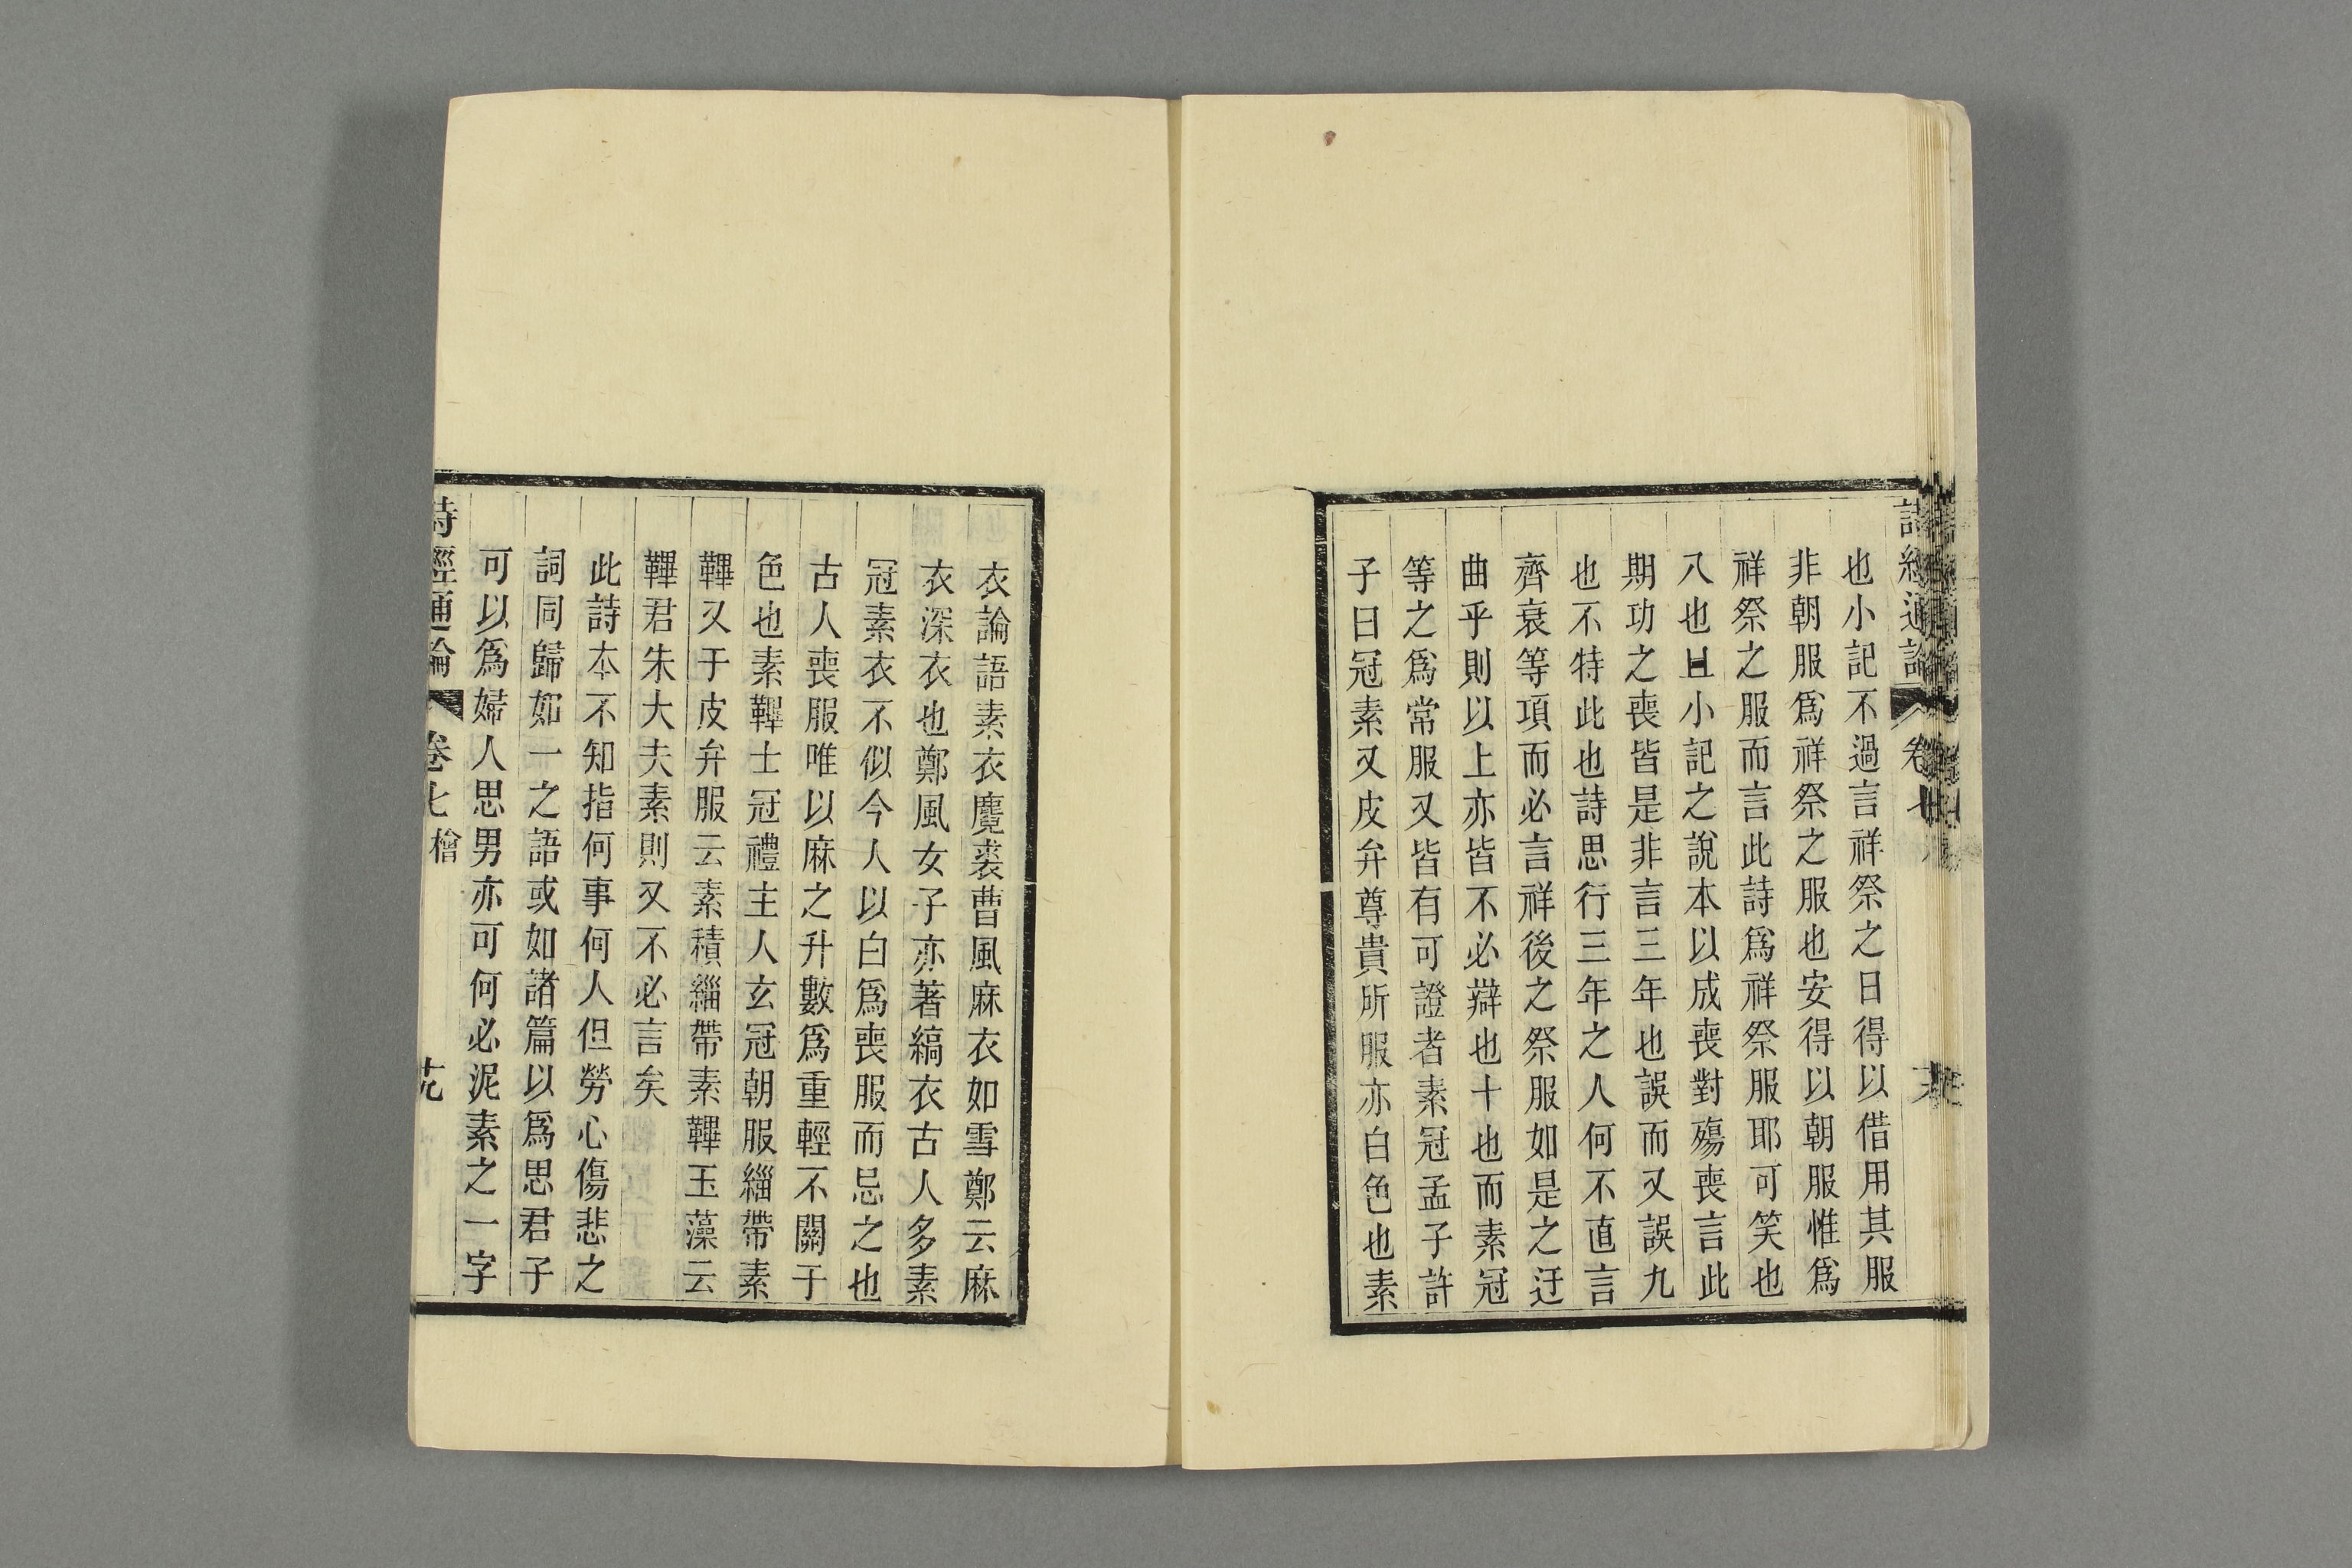 詩經通論 卷七
也小記不過言祥祭之日得以借用其服
非朝服爲祥祭之服也安得以朝服惟爲
祥祭之服而言此詩爲祥祭服耶可笑也
八也且小記之說本以成喪對殤喪言此
期功之喪皆是非言三年也誤而又誤九
也不特此也詩思行三年之人何不直言
齊衰等項而必言祥後之祭服如是之迂
曲乎則以上亦皆不必辯也十也而素冠
等之爲常服又皆有可證者素冠孟子許
子曰冠素又皮弁尊貴所服亦白色也素
衣論語素衣麑裘曹風麻衣如雪鄭云麻
衣深衣也鄭風女子亦著縞衣古人多素
冠素衣不似今人以白爲喪服而忌之也
古人喪服唯以麻之升數爲重輕不關于
色也素鞸士冠禮主人玄冠朝服緇帶素
鞸又于皮弁服云素積緇帶素鞸玉藻云
鞸君朱大夫素則又不必言矣
此詩本不知指何事何人但勞心傷悲之
詞同歸如一之語或如諸篇以爲思君子
可以爲婦人思男亦可何必泥素之一字
詩經通論 卷七檜